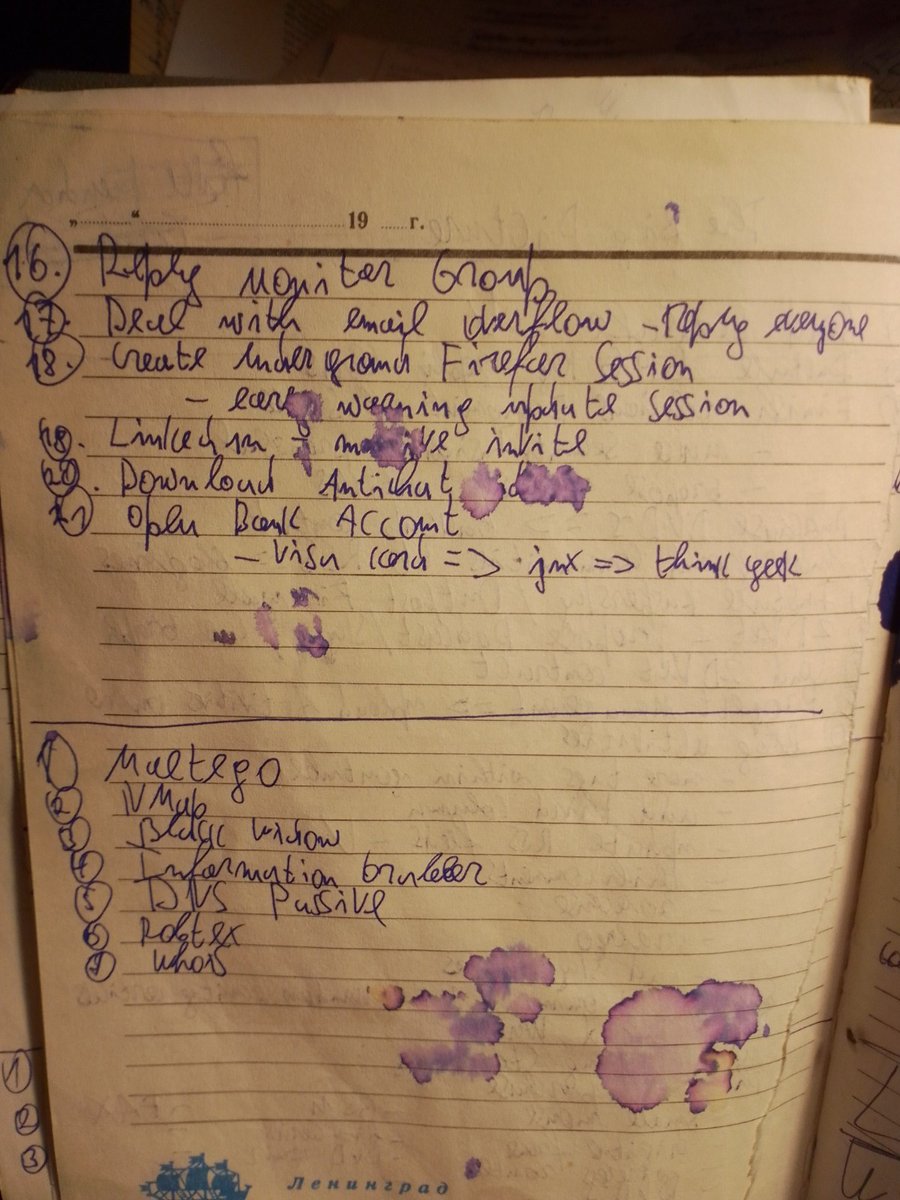 „ “ 19 г.
16. Reply Monitor Group
17. Deal with email overflow - Reply everyone
18. Create Underground Firefox Session
- early warning update session
19. Linked in - massive invite
20. Download Antichat
21 Open Bank Account
- Visa card => jmx => think geek
1 Maltego
2 NMap
3 Black Widow
4 Information broker
5 DNS Passive
6 Robtex
7 Whois
1
2
3
Ленинград